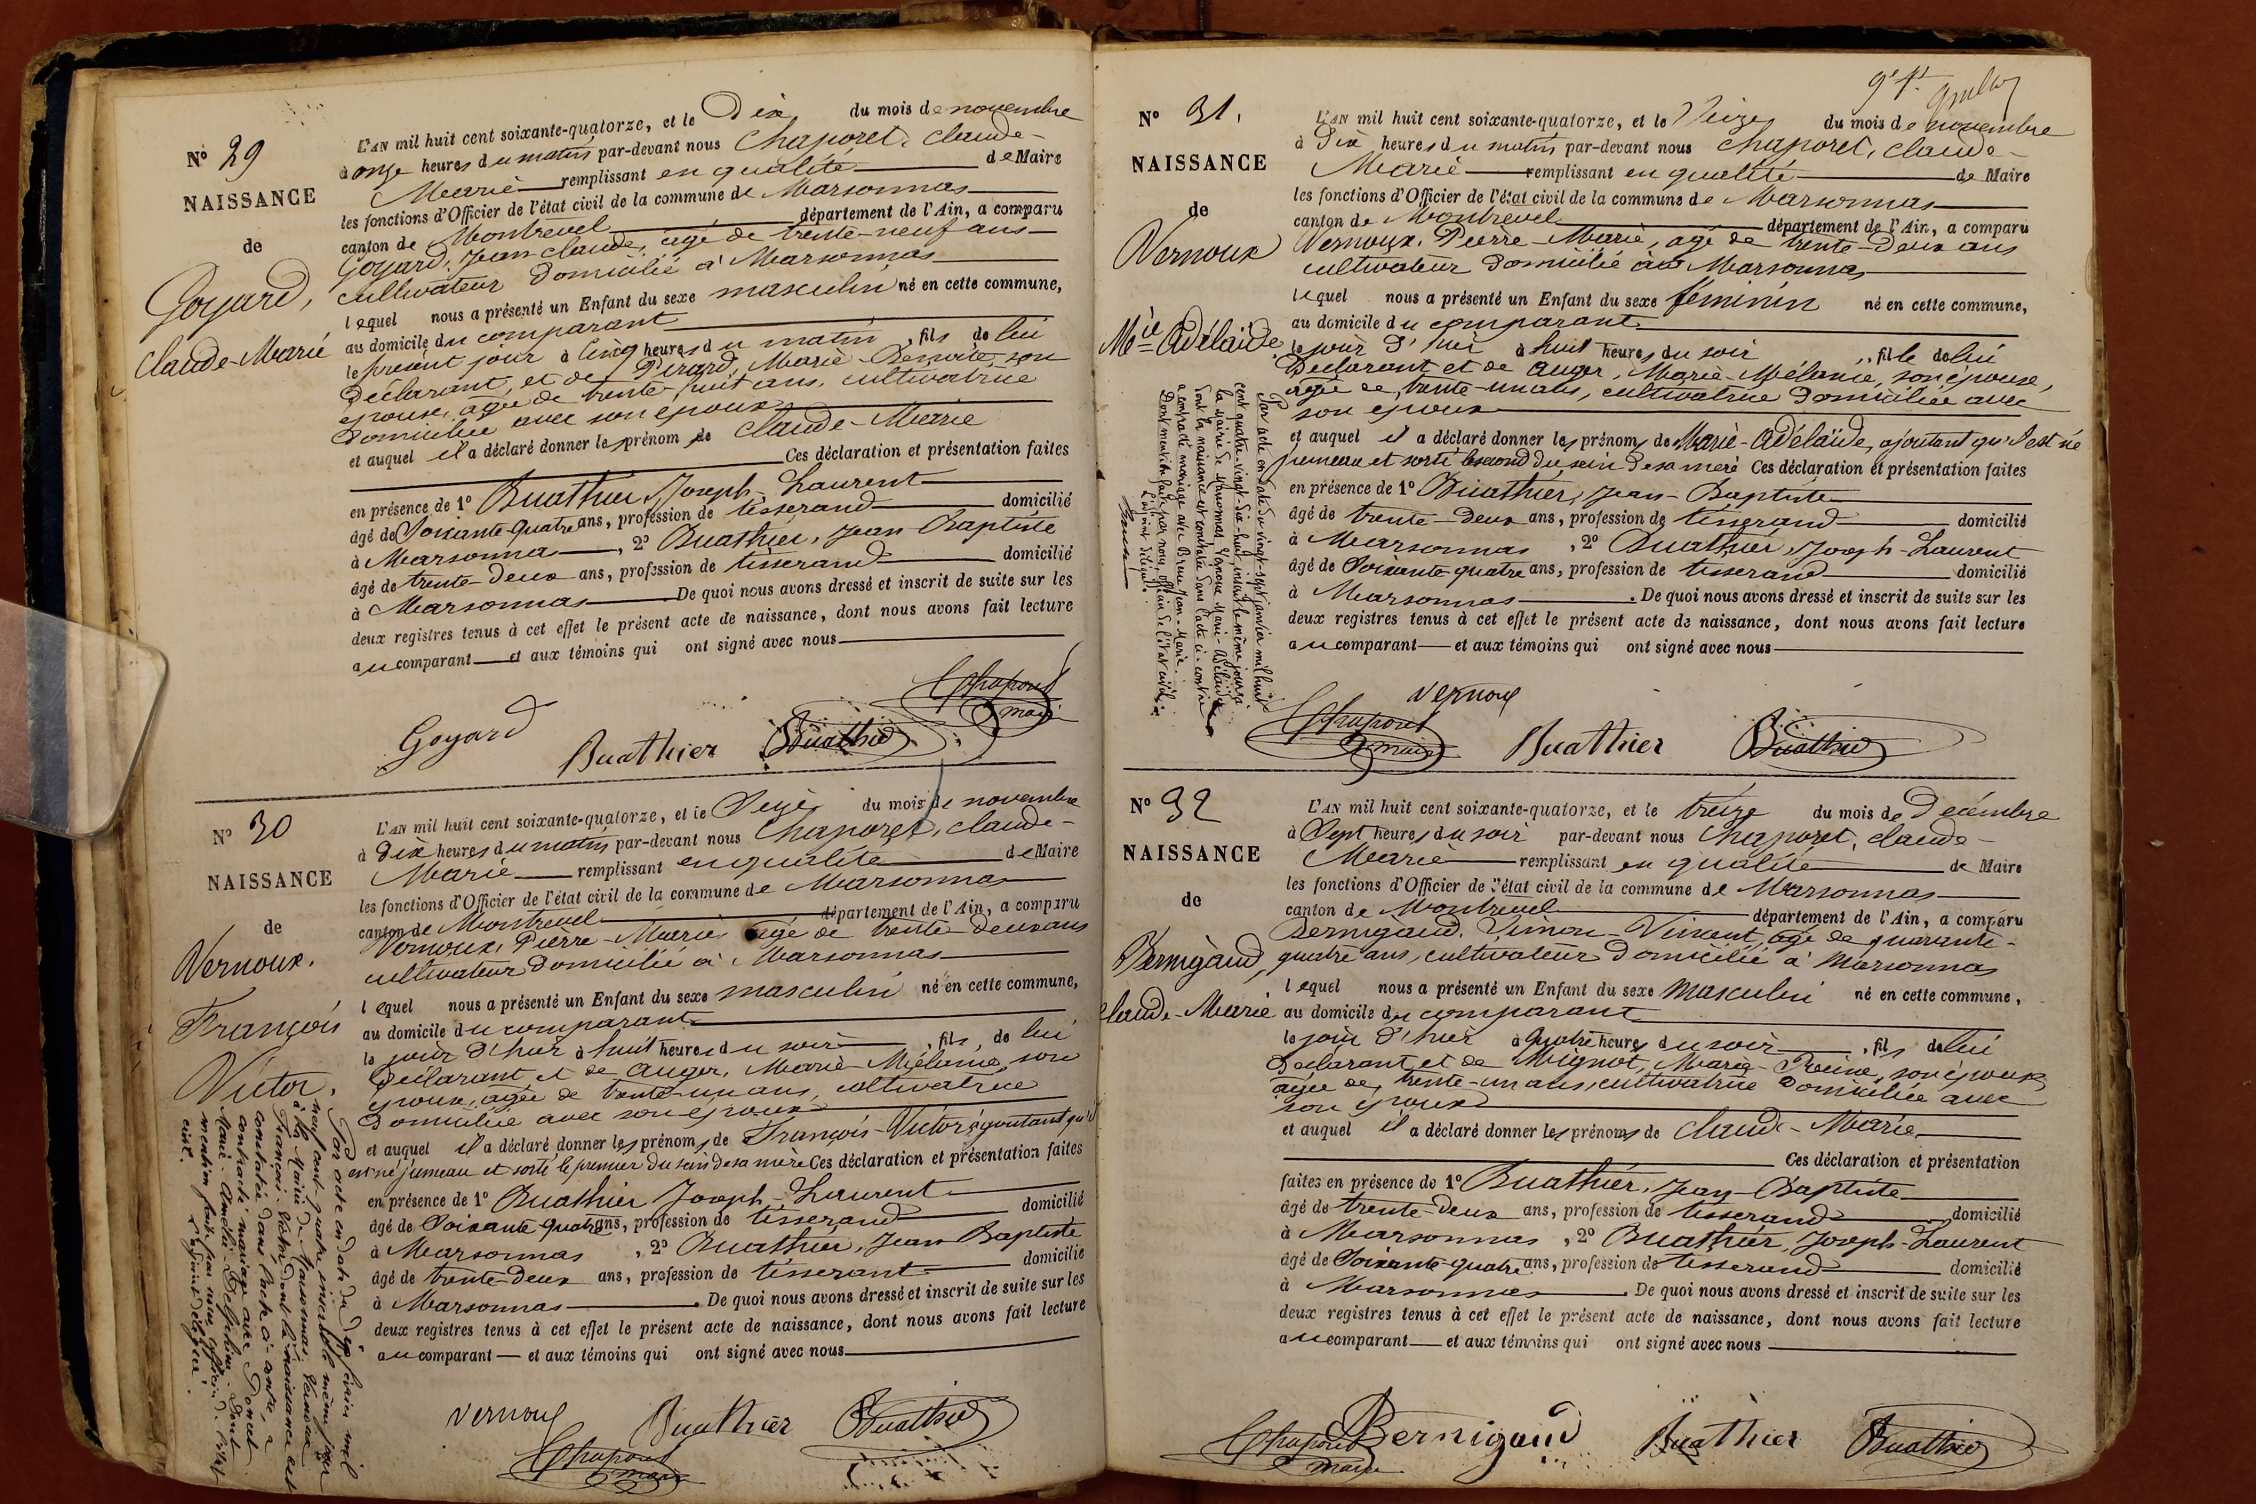 N° 29
NAISSANCE
de
Goyard,
Claude-Marie
L'AN mil huit cent soixante-quatorze, et le Dix du mois de novembre
à onze heures du matin par-devant nous Chaporet, Claude-
Marie remplissant en qualité de Maire
les fonctions d'Officier de l'état civil de la commune de Marsonnas
canton de Montrevel département de l'Ain, a comparu
Goyard, Jean-Claude, agé de trente-neuf ans
cultivateur domicilié à Marsonnas
lequel nous a présenté un Enfant du sexe masculin né en cette commune,
au domicile du comparant
le présent jour à cinq heures du matin, fils de lui
Déclarant, et de Pirard, Marie-Benoite, son
épouse, agée de trente-huit ans, cultivatrice
domiciliée avec son époux
et auquel il a déclaré donner les prénom de Claude-Marie
Ces déclaration et présentation faites
en présence de 1° Buathier, Joseph-Laurent
âgé de Soixante-quatre ans, profession de tisserand domicilié
à Marsonnas, 2° Buathier, Jean Baptiste
âgé de trente-deux ans, profession de tisserand domicilié
à Marsonnas. De quoi nous avons dressé et inscrit de suite sur les
deux registres tenus à cet effet le présent acte de naissance, dont nous avons fait lecture
au comparant et aux témoins qui ont signé avec nous
Chaporet
maire
Goyard
Buathier
Buathier
N° 30
NAISSANCE
de
Vernoux.
François
Victor.
L'AN mil huit cent soixante-quatorze, et le Seize du mois de novembre
à Dix heures du matin par-devant nous Chaporet, Claude-
Marie remplissant en qualité de Maire
les fonctions d'Officier de l'état civil de la commune de Marsonnas
canton de Montrevel département de l'Ain, a comparu
Vernoux, Pierre-Marie agé de trente-deux ans
cultivateur domicilié à Marsonnas
lequel nous a présenté un Enfant du sexe masculin né en cette commune,
au domicile du comparant
le jour d'hier à huit heures du soir, fils de lui
Déclarant et de Auger, Marie-Mélanie, son
épouse, agée de trente-un ans, cultivatrice
domiciliée avec son époux
et auquel il a déclaré donner les prénoms de François-Victor ajoutant qu'il
est né jumeau et sorti le premier du sein de sa mère Ces déclaration et présentation faites
en présence de 1° Buathier Joseph-Laurent
âgé de Soixante quatre ans, profession de tisserand domicilié
à Marsonnas, 2° Buathier, Jean Baptiste
âgé de trente-deux ans, profession de tisserant domicilié
à Marsonnas. De quoi nous avons dressé et inscrit de suite sur les
deux registres tenus à cet effet le présent acte de naissance, dont nous avons fait lecture
au comparant et aux témoins qui ont signé avec nous
Par acte en date du dix février mil
neuf cent quatre inscrit le même jour
à la Mairie de Marsonnas, Vernoux
François-Victor dont la naissance est
constatée dans l'acte ci-contre, a
contracté mariage avec Doncet
Marie-Amélie Delphine. Dont
mention faite par nous, officier de l'état
civil. L'adjoint délégué.
Vernoux
Buathier
Buathier
Chaporet
maire
N° 31.
NAISSANCE
de
Vernoux
Mie Adélaïde
L'AN mil huit cent soixante-quatorze, et le Seize du mois de novembre
à Dix heures du matin par-devant nous Chaporet, Claude-
Marie remplissant en qualité de Maire
les fonctions d'Officier de l'état civil de la commune de Marsonnas
canton de Montrevel département de l'Ain, a comparu
Vernoux, Pierre-Marie, agé de trente-deux ans
cultivateur domicilié à Marsonnas
lequel nous a présenté un Enfant du sexe féminin né en cette commune,
au domicile du comparant
le jour d'hier à huit heures du soir, fille de lui
Déclarant et de Auger, Marie-Mélanie, son épouse,
agée de trente-un ans, cultivatrice domiciliée avec
son époux
et auquel il a déclaré donner les prénoms de Marie-Adélaïde, ajoutant qu'il est né
jumeau et sorti le second du sein de sa mère Ces déclaration et présentation faites
en présence de 1° Buathier, Jean-Baptiste
âgé de trente-deux ans, profession de tisserand domicilié
à Marsonnas, 2° Buathier, Joseph-Laurent
âgé de Soixante quatre ans, profession de tisserand domicilié
à Marsonnas. De quoi nous avons dressé et inscrit de suite sur les
deux registres tenus à cet effet le présent acte de naissance, dont nous avons fait lecture
au comparant et aux témoins qui ont signé avec nous
Par acte en date du vingt-sept janvier mil huit
cent quatre-vingt-dix-huit, inscrit le même jour à
la Mairie de Marsonnas, Vernoux Marie-Adélaïde
dont la naissance est constatée dans l'acte ci-contre
a contracté mariage avec Jean-Marie.
Dont mention faite par nous, officier de l'état civil.
L'adjoint délégué.
Vernoux
Chaporet
maire
Buathier
Buathier
N° 32
NAISSANCE
de
Bernigaud,
Claude-Marie
L'AN mil huit cent soixante-quatorze, et le treize du mois de Décembre
à Sept heures du soir par-devant nous Chaporet, Claude-
Marie remplissant en qualité de Maire
les fonctions d'Officier de l'état civil de la commune de Marsonnas
canton de Montrevel département de l'Ain, a comparu
Bernigaud, Simon-Vincent, agé de quarante-
quatre ans, cultivateur domicilié à Marsonnas
lequel nous a présenté un Enfant du sexe masculin né en cette commune,
au domicile du comparant
le jour d'hier à quatre heures du soir, fils de lui
Déclarant et de Mignot, Marie-Reine, son épouse
agée de trente-un ans, cultivatrice domiciliée avec
son époux
et auquel il a déclaré donner les prénoms de Claude-Marie
Ces déclaration et présentation
faites en présence de 1° Buathier, Jean-Baptiste
âgé de trente-deux ans, profession de tisserand domicilié
à Marsonnas, 2° Buathier, Joseph-Laurent
âgé de Soixante-quatre ans, profession de tisserand domicilié
à Marsonnas. De quoi nous avons dressé et inscrit de suite sur les
deux registres tenus à cet effet le présent acte de naissance, dont nous avons fait lecture
au comparant et aux témoins qui ont signé avec nous
Chaporet
maire
Bernigaud
Buathier
Buathier